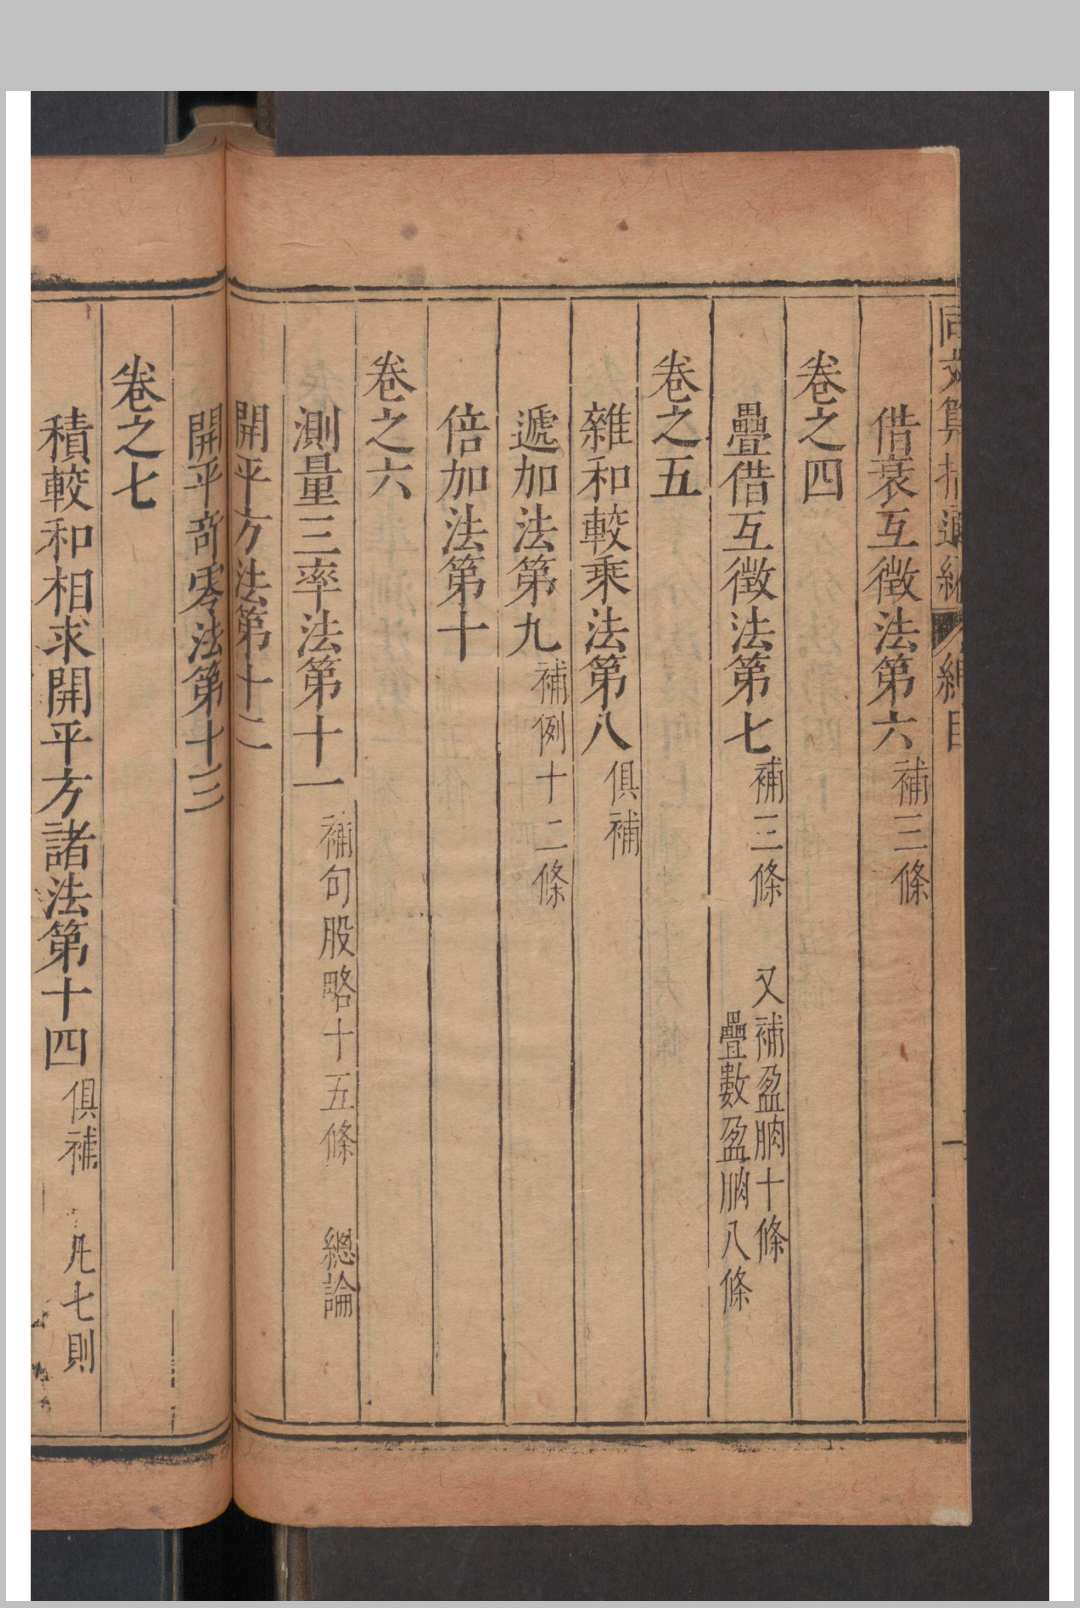 同文算指通編 總目 一
借衰互徵法第六 補三條
卷之四
疊借互徵法第七 補三條 又補盈朒十條
疊數盈朒八條
卷之五
雜和較乘法第八 俱補
遞加法第九 補例十二條
倍加法第十
卷之六
測量三率法第十一 補句股略十五條 總論
開平方法第十二
開平奇零法第十三
卷之七
積較和相求開平方諸法第十四 俱補 凡七則